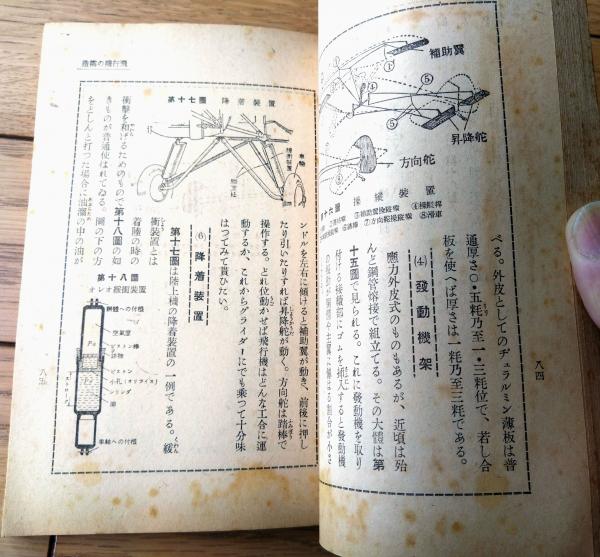 べる。外皮としてのヂュラルミン薄板は普
通厚さ〇・五粍乃至一・三粍位で、若し合
板を使へば厚さは一粍乃至三粍である。
⑷ 發動機架
應力外皮式のものもあるが、近頃は殆
んど鋼管熔接で組立てる。その大體は第
十五圖で見られる。これに發動機を取り
付ける接續部にゴムを挿入すると發動機
補助翼
昇降舵
方向舵
操縱裝置
八四
ンドルを左右に傾けると補助翼が動き、前後に押し
たり引いたりすれば昇降舵が動く。方向舵は踏棒で
操作する。どれ位動かせば飛行機はどんな工合に運
動するか、これからグライダーにでも乘つて十分味
はつてみて貰ひたい。
⑹ 降着裝置
第十七圖は陸上機の降着裝置の一例である。緩
衝裝置とは
着陸の時の
衝擊を和げるためのもので第十八圖の如
きものが普通使はれてゐる。圖の下の方
をどしんと打つた場合に油溜の中の油が
第十七圖 降着裝置
車輪
緩衝裝置
第十八圖
オレオ緩衝裝置
胴體への付根
空氣室
ピストン棒
ピストン
小孔(オリフイス)
シリンダ
油
車軸への付根
八五